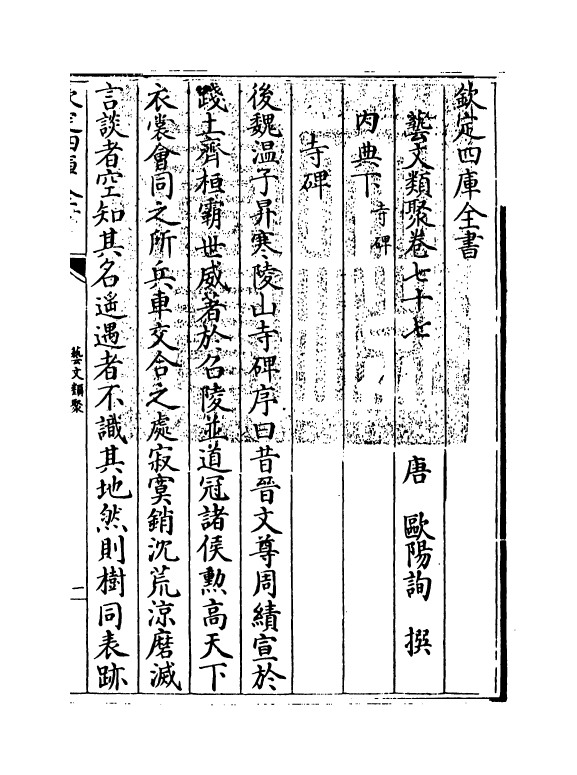 欽定四庫全書
藝文類聚卷七十七
唐 歐陽詢 撰
內典下 寺碑
寺碑
後魏温子昇寒陵山寺碑序曰昔晉文尊周績宣於
踐土齊桓霸世威著於召陵並道冠諸侯勲高天下
衣裳會同之所兵車交合之處寂寞銷沈荒涼磨滅
言談者空知其名遥遇者不識其地然則樹同表跡
欽定四庫全書
藝文類聚
一